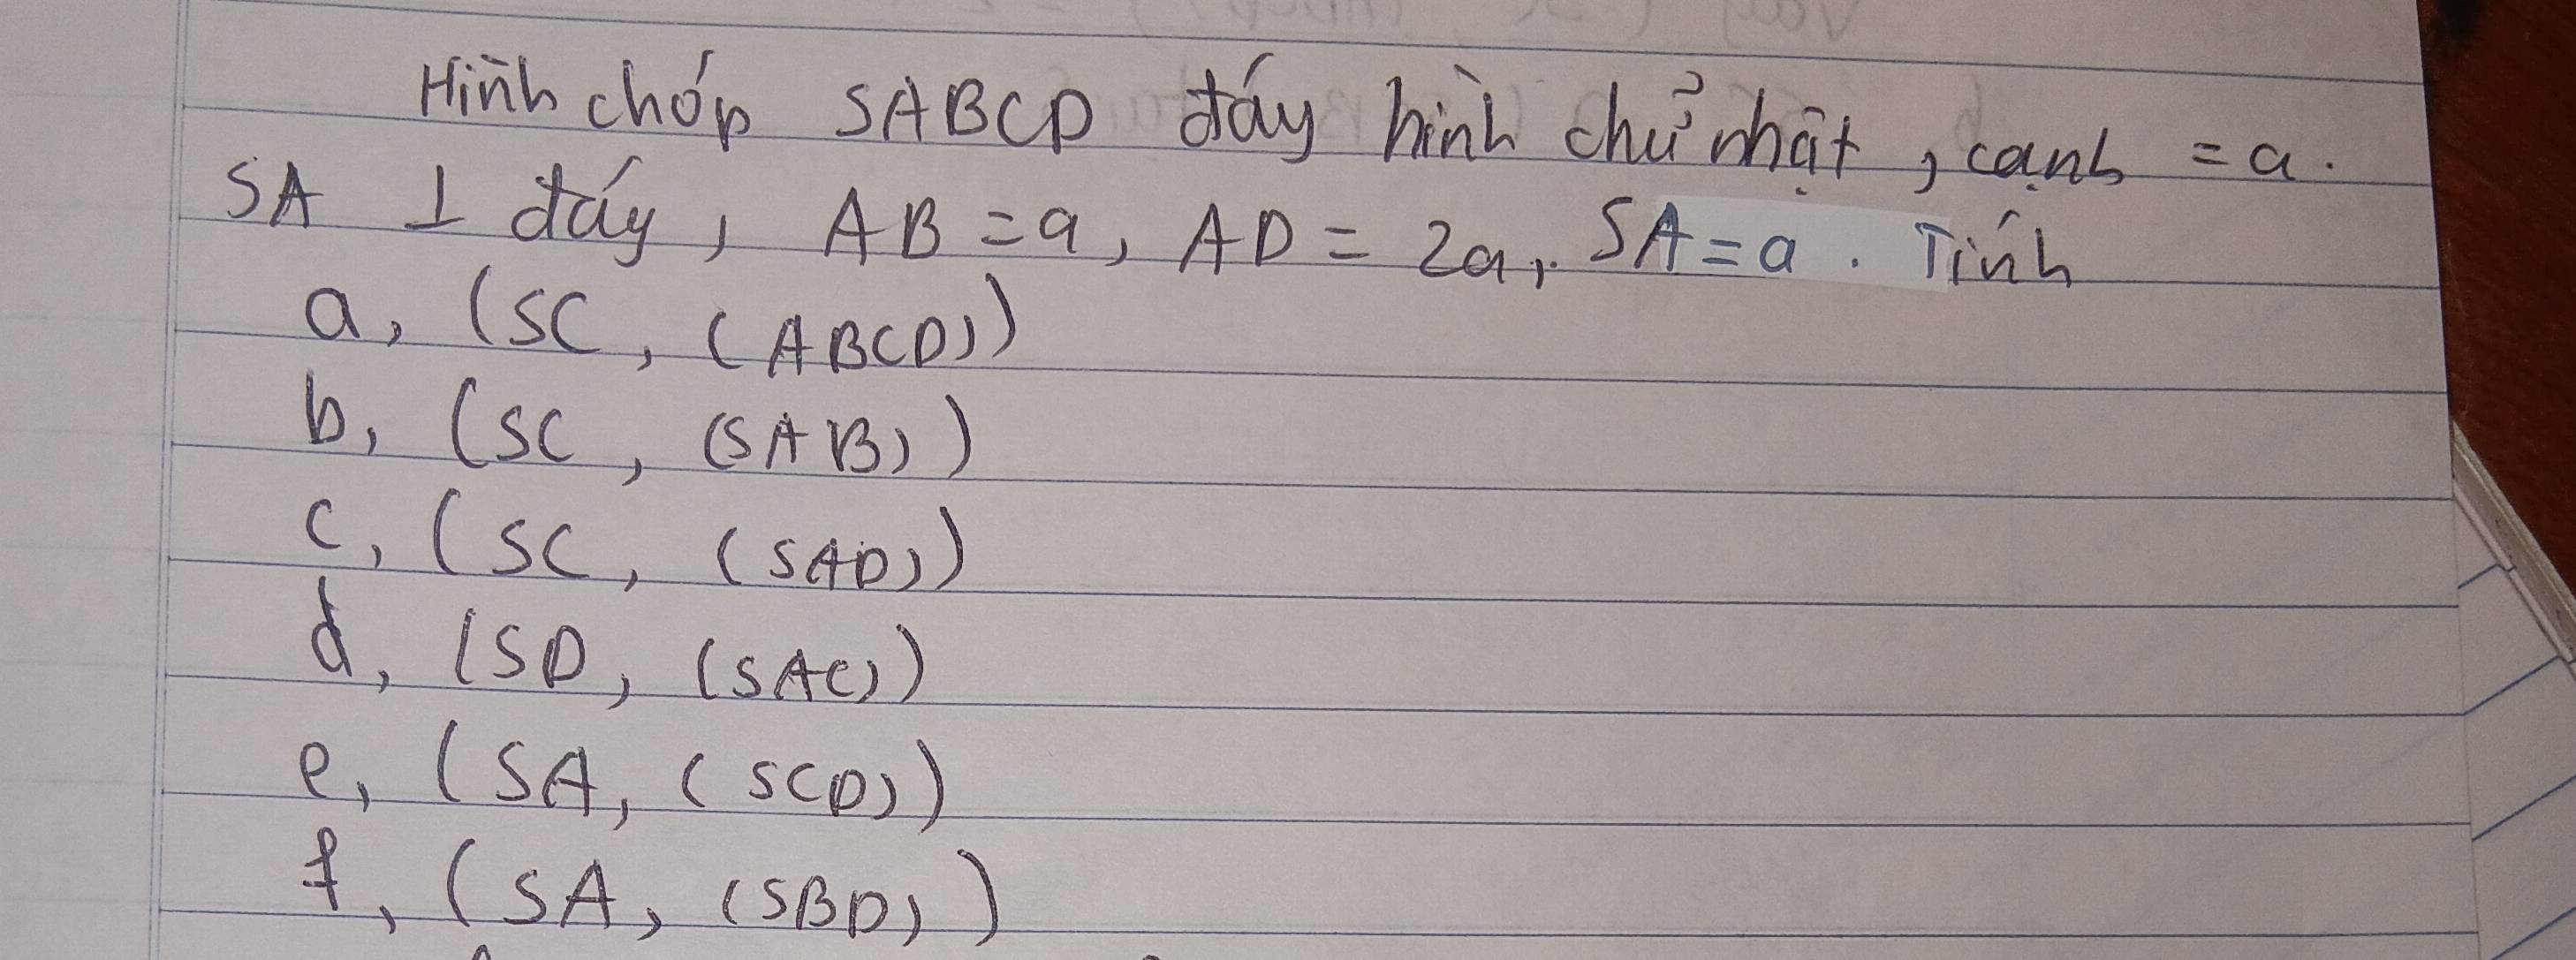 Hình chóp SABCD đáy hình chử nhật, cạnh = a.
SA ⊥ đáy, AB = a, AD = 2a, SA = a. Tính
a, (SC, (ABCD))
b, (SC, (SAB))
c, (SC, (SAD))
d, (SD, (SAC))
e, (SA, (SCD))
f, (SA, (SBD))